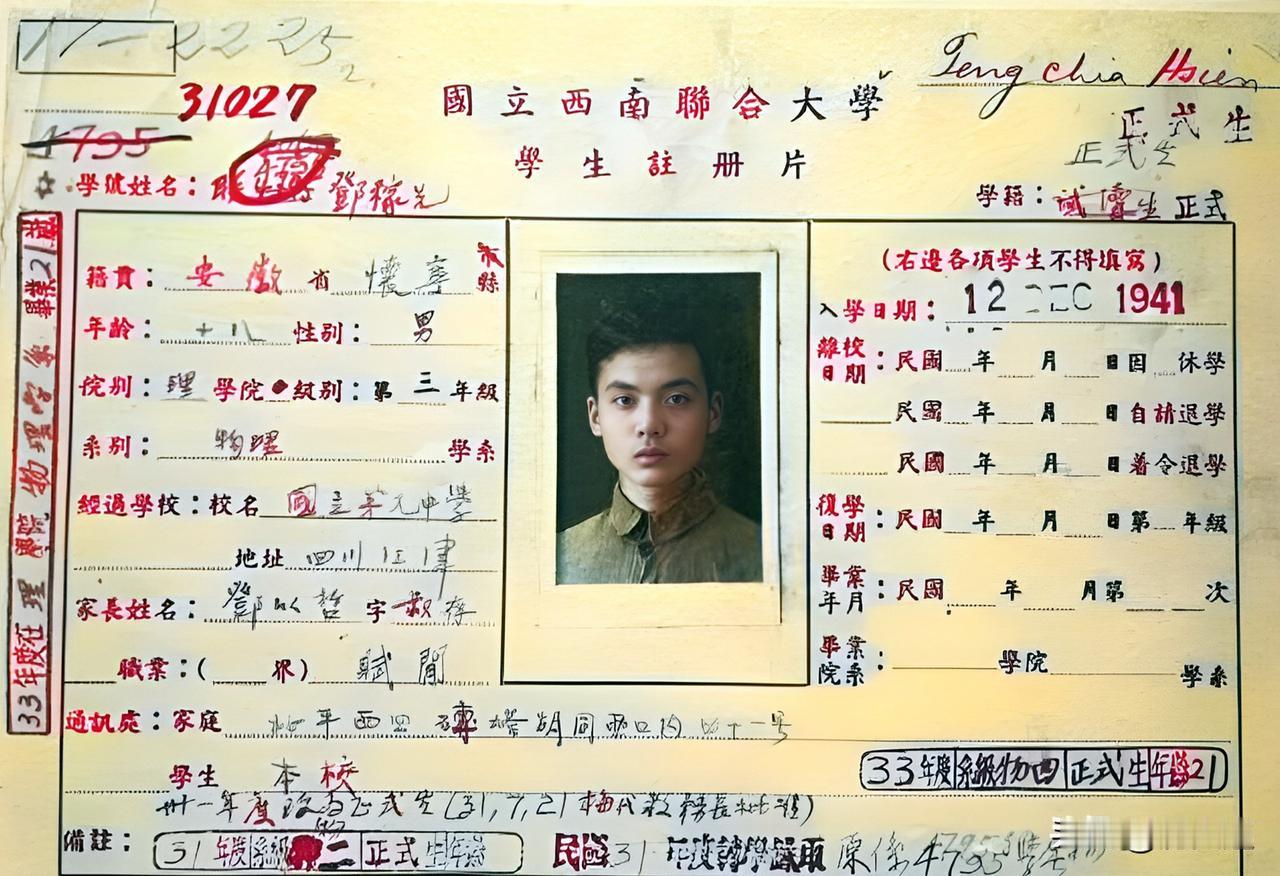 17-2225
Teng chia Hsien
31027
國立西南聯合大學
正式生
4795
學生註册片
正式生
學號姓名：聯 鄧稼先
學籍：試讀生 正式
籍貫：安徽省懷寧縣
年齡：十八 性別：男
院別：理學院 級別：第三年級
系別：物理學系
經過學校：校名 國立第九中學
地址 四川江津
家長姓名：鄧以蟄 字 叔存
職業：( 界) 賦閒
通訊處：家庭 北平西四 胡同 口內四十一号
學生 本校
(右邊各項學生不得填寫)
入學日期：12 DEC 1941
離校日期：民國 年 月 日因 休學
民國 年 月 日自請退學
民國 年 月 日着令退學
復學日期：民國 年 月 日第 年級
畢業年月：民國 年 月第 次
畢業院系： 學院 學系
33年度 系級 物四 正式生 年齡21
卅一年度改為正式生(31,7,21梅代教務長批准)
備註：31年度 系級 物二 正式生 年齡
民國31年度轉學錄取 原係4795學生
33年度在理學院物理學系畢業21